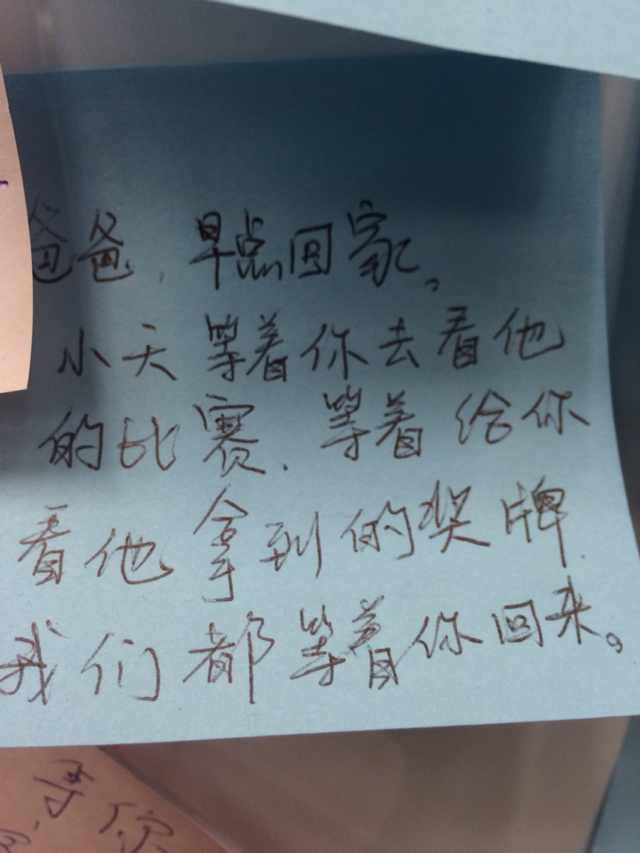 爸爸，早点回家。
小天等着你去看他
的比赛、等着给你
看他拿到的奖牌
我们都等着你回来。
你